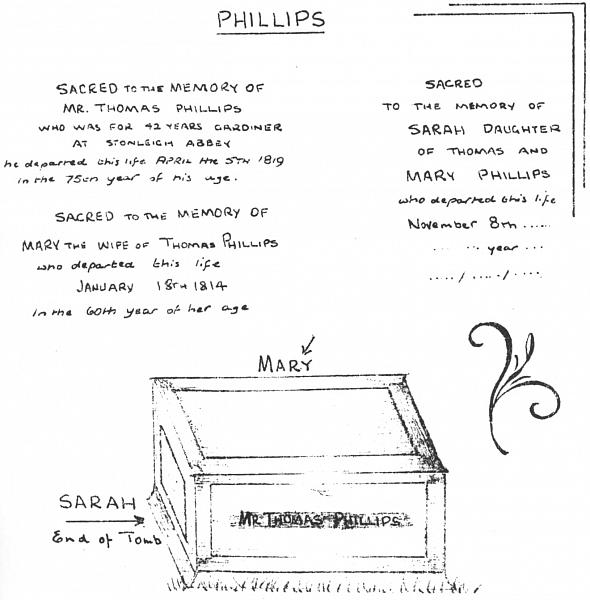 PHILLIPS
SACRED TO THE MEMORY OF
MR. THOMAS PHILLIPS
WHO WAS FOR 42 YEARS GARDINER
AT STONLEIGH ABBEY
he departed this life APRIL the 5TH 1819
in the 75th year of his age.
SACRED TO THE MEMORY OF
MARY THE WIFE OF THOMAS PHILLIPS
who departed this life
JANUARY 18TH 1814
In the 60th year of her age
SACRED
TO THE MEMORY OF
SARAH DAUGHTER
OF THOMAS AND
MARY PHILLIPS
who departed this life
November 8th ......
... ... year ...
..../ ..../ ....
MARY
SARAH
End of Tomb
MR THOMAS PHILLIPS